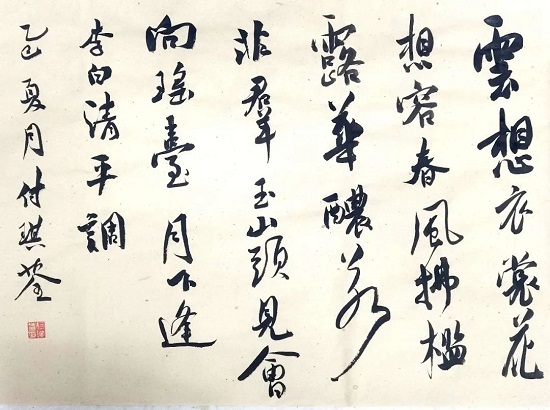 雲想衣裳花
想容春風拂檻
露華醲若
非羣玉山頭見會
向瑤臺月下逢
李白清平調
乙巳夏月付琪荃